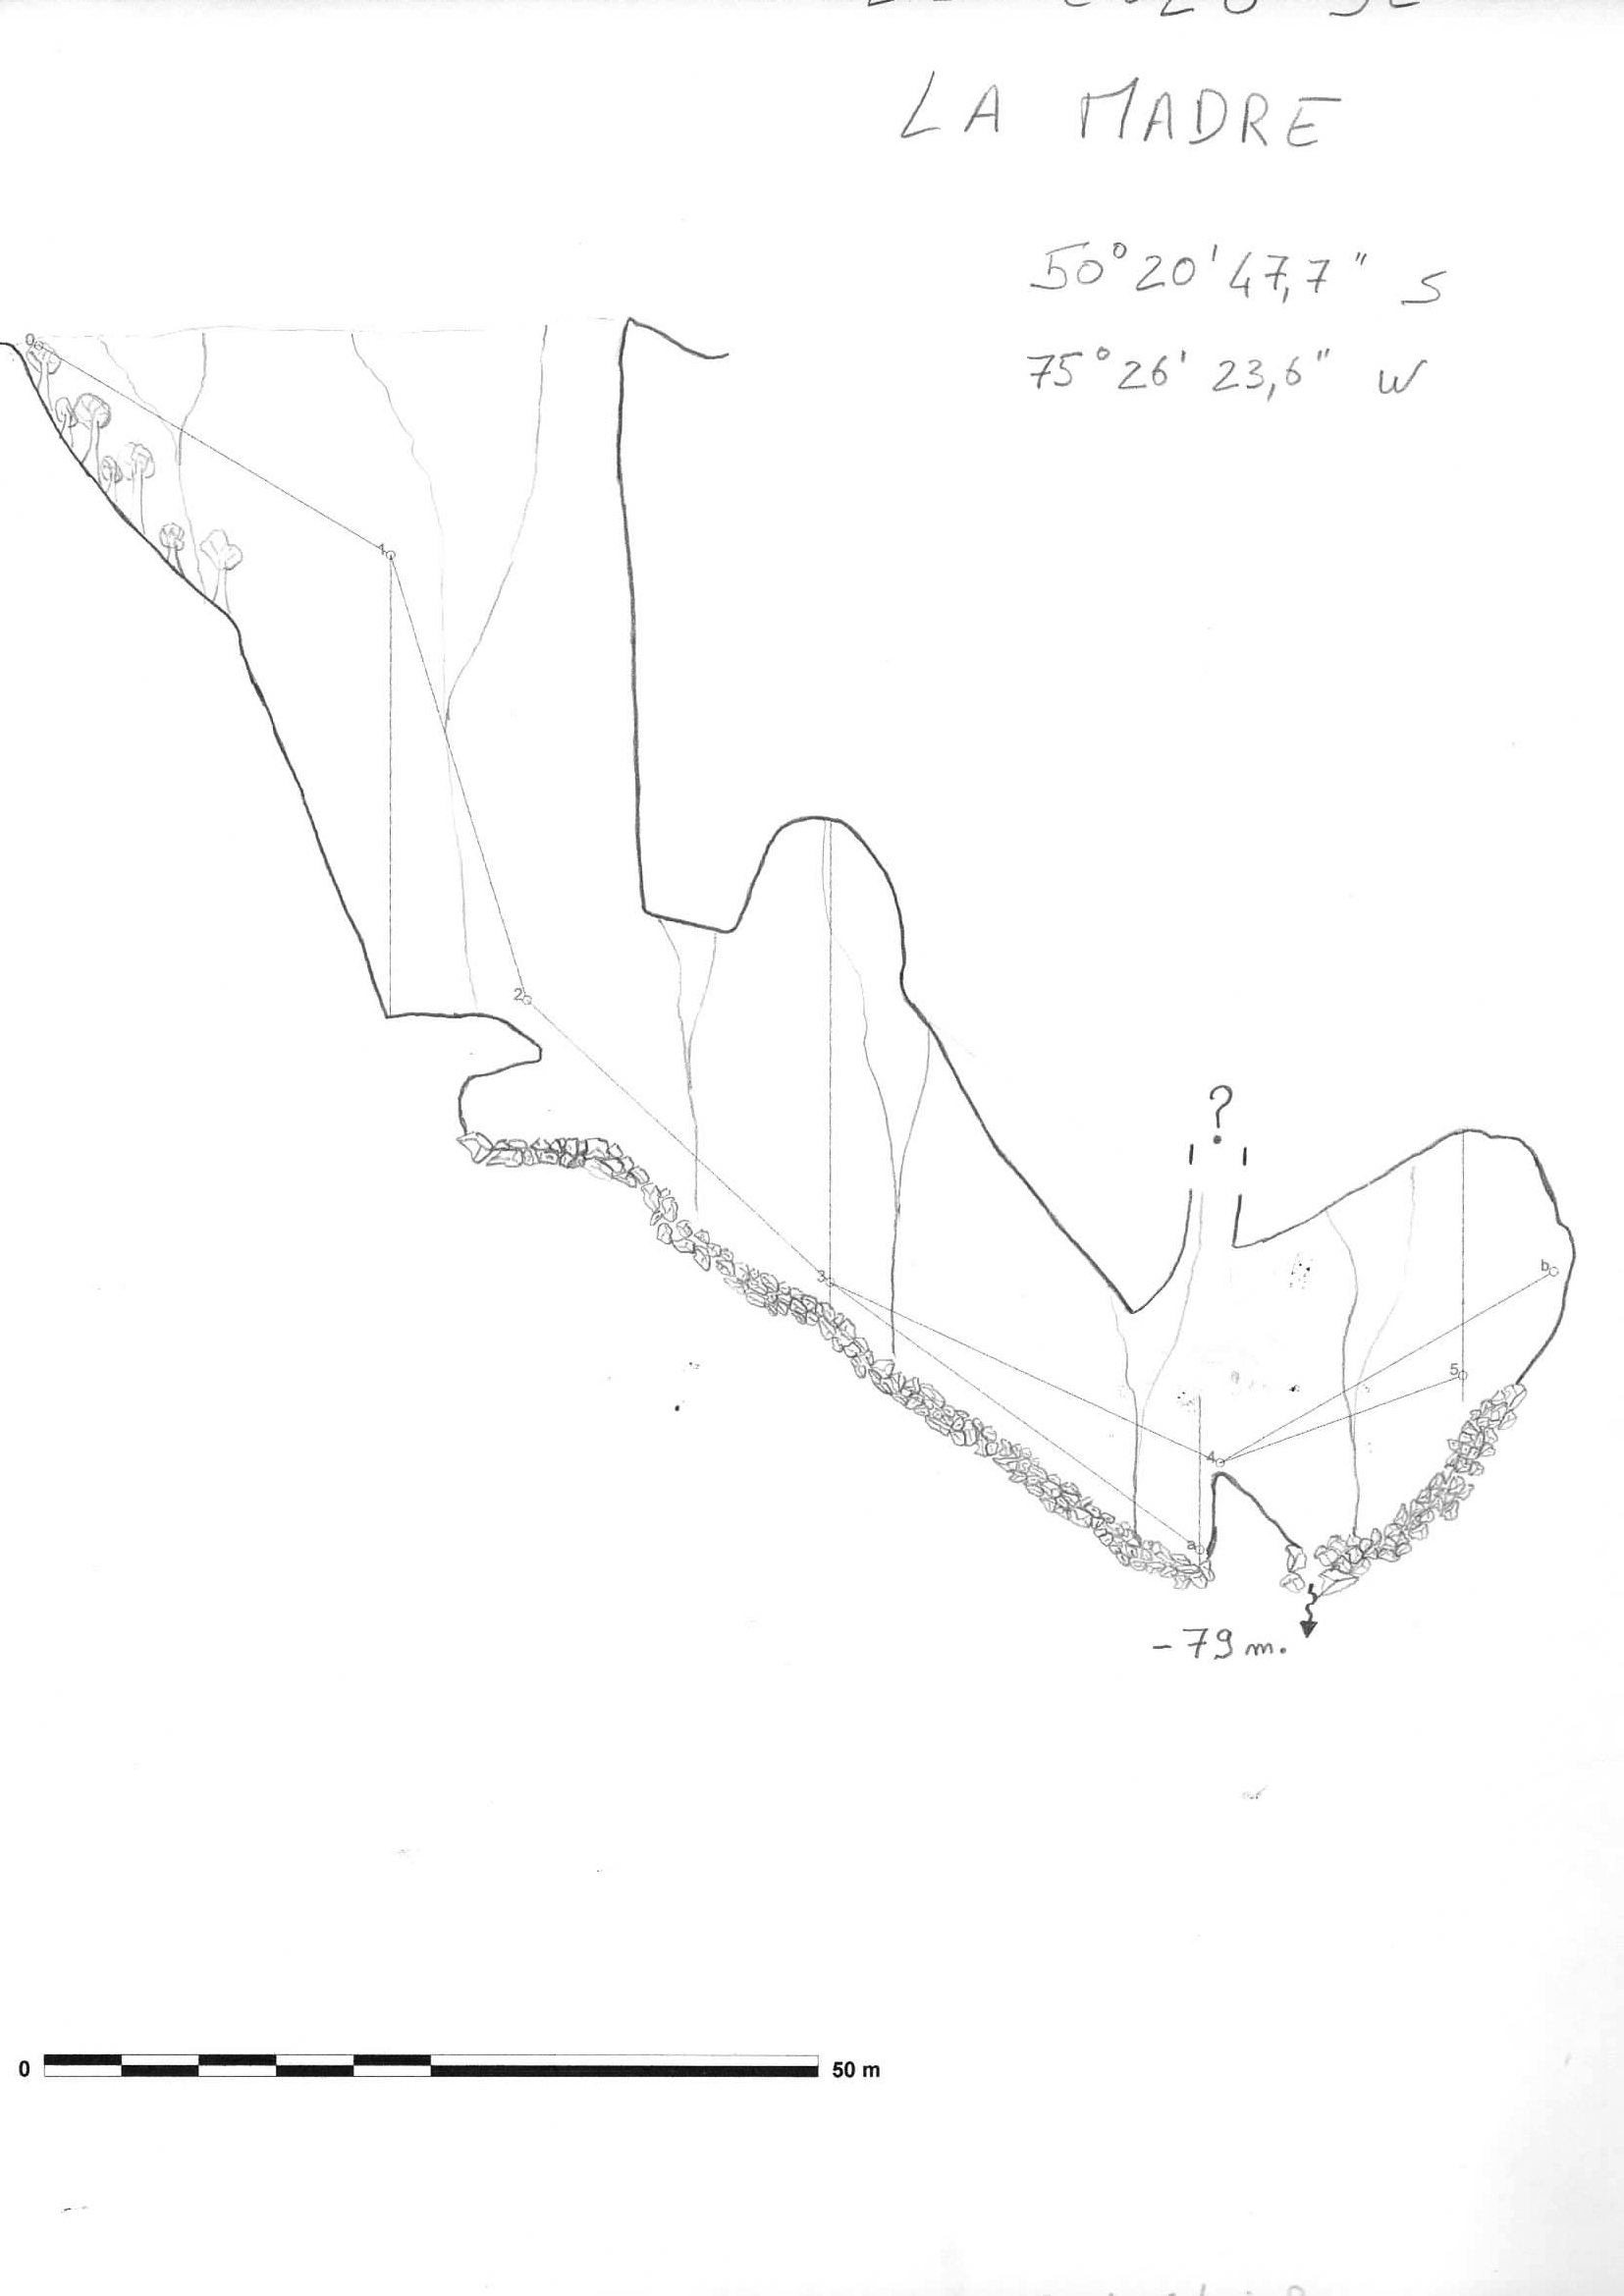 LA MADRE
50° 20' 47,7" S
75° 26' 23,6" W
0
1
2
?
3
b
5
4
a
-79 m.
0 50 m